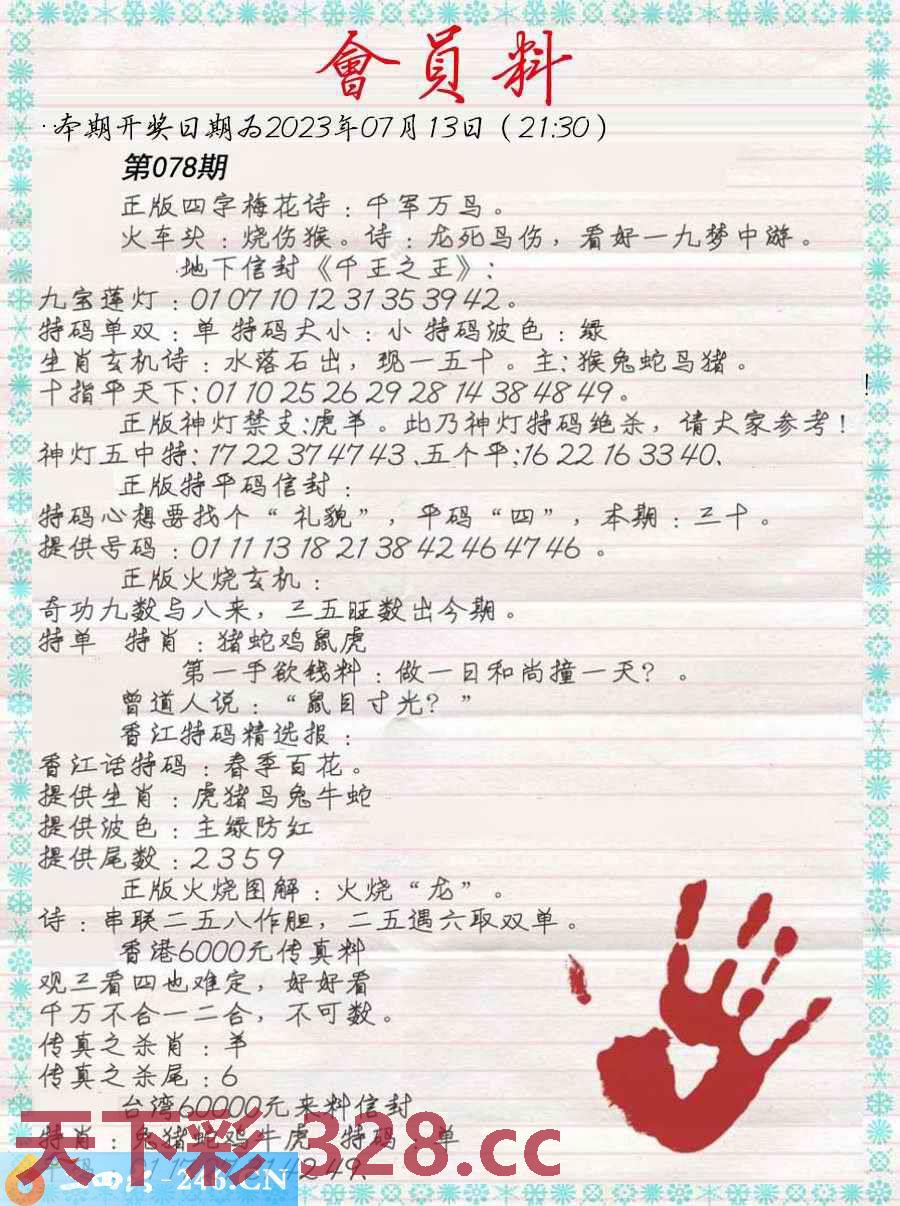 會員料
·本期开奖日期为2023年07月13日（21:30）
第078期
正版四字梅花诗：千军万鸟。
火车头：烧伤猴。诗：龙死鸟伤，看好一九梦中游。
地下信封《千王之王》：
九宝莲灯：01 07 10 12 31 35 39 42。
特码单双：单 特码大小：小 特码波色：绿
生肖玄机诗：水落石出，现一五十。主：猴兔蛇鸟猪。
十指平天下：01 10 25 26 29 28 14 38 48 49。
正版神灯禁支:虎羊。此乃神灯特码绝杀，请大家参考！
神灯五中特：17 22 37 47 43、五个平:16 22 16 33 40、
正版特平码信封：
特码心想要找个“礼貌”，平码“四”，本期：三十。
提供号码：01 11 13 18 21 38 42 46 47 46 。
正版火烧玄机：
奇功九数与八来，三五旺数出今期。
特单 特肖：猪蛇鸡鼠虎
第一手欲钱料：做一日和尚撞一天？。
曾道人说：“鼠目寸光？”
香江特码精选报：
香江话特码：春季百花。
提供生肖：虎猪鸟兔牛蛇
提供波色：主绿防红
提供尾数：2 3 5 9
正版火烧图解：火烧“龙”。
诗：串联二五八作胆，二五遇六取双单。
香港6000元传真料
观三看四也难定，好好看
千万不合一二合，不可数。
传真之杀肖：羊
传真之杀尾：6
台湾60000元来料信封
特肖：兔猪蛇鸡牛虎 特码：单
42 49、
天下彩 328.cc
-246.CN